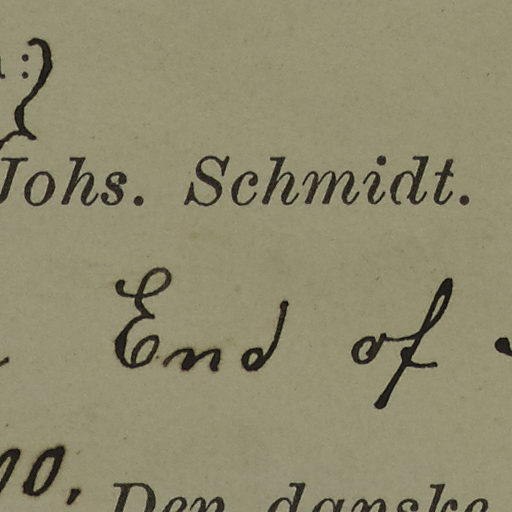 Johs. Schmidt.
End of
0. Den danske